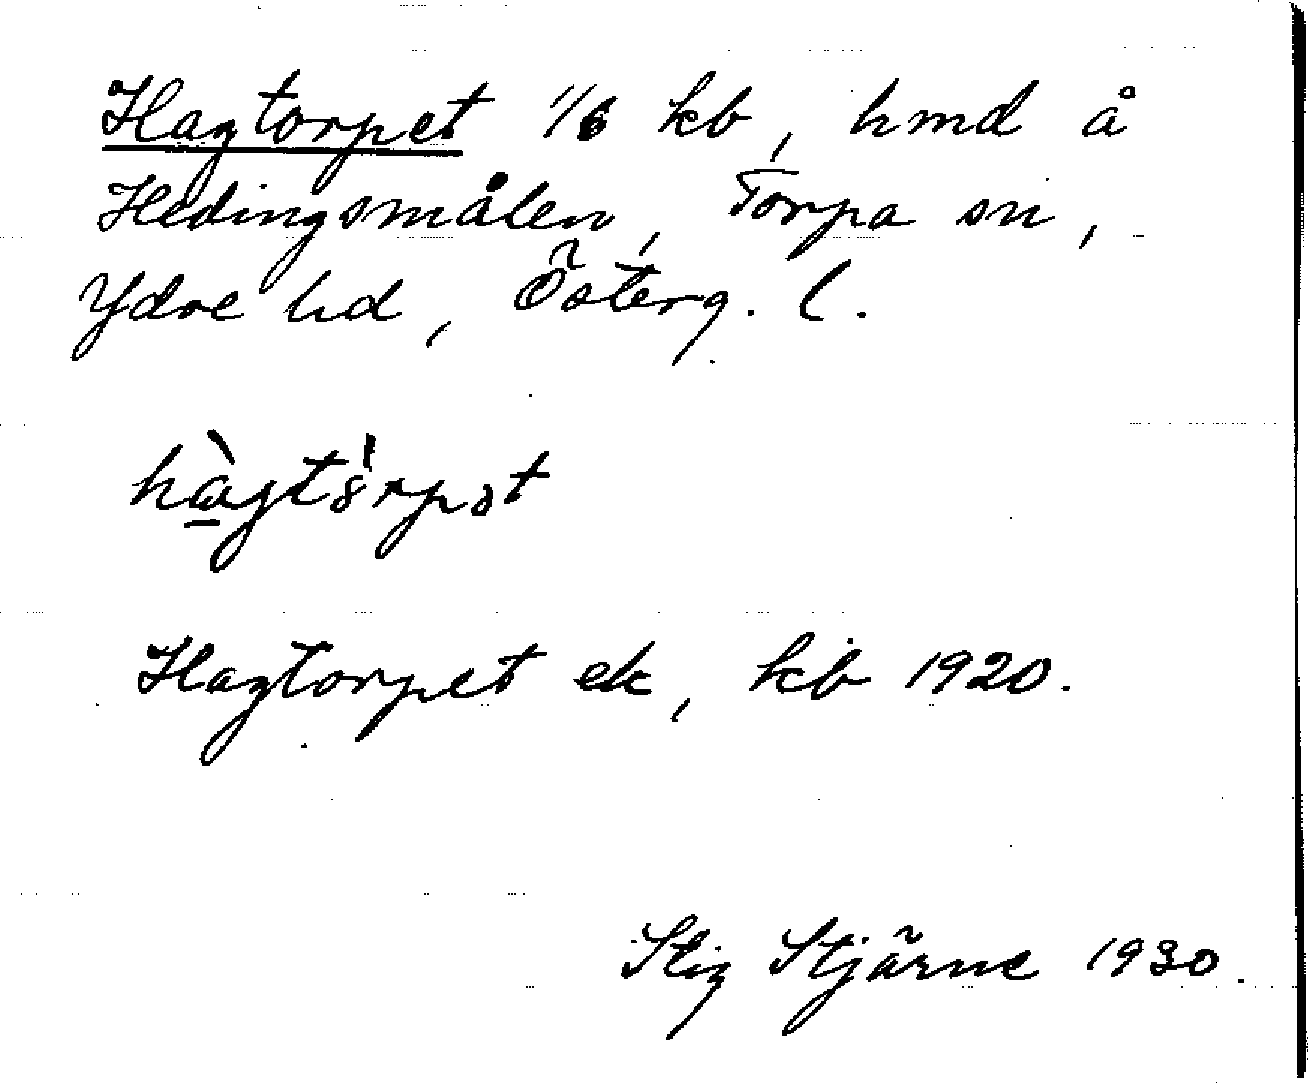 Hagtorpet 1/6 kb, hmd å
Hedingsmålen, Torpa sn,
Ydre hd, Österg. l.
hàgtȯ́rpət
Hagtorpet ek, kb 1920.
Stig Stjärne 1930.